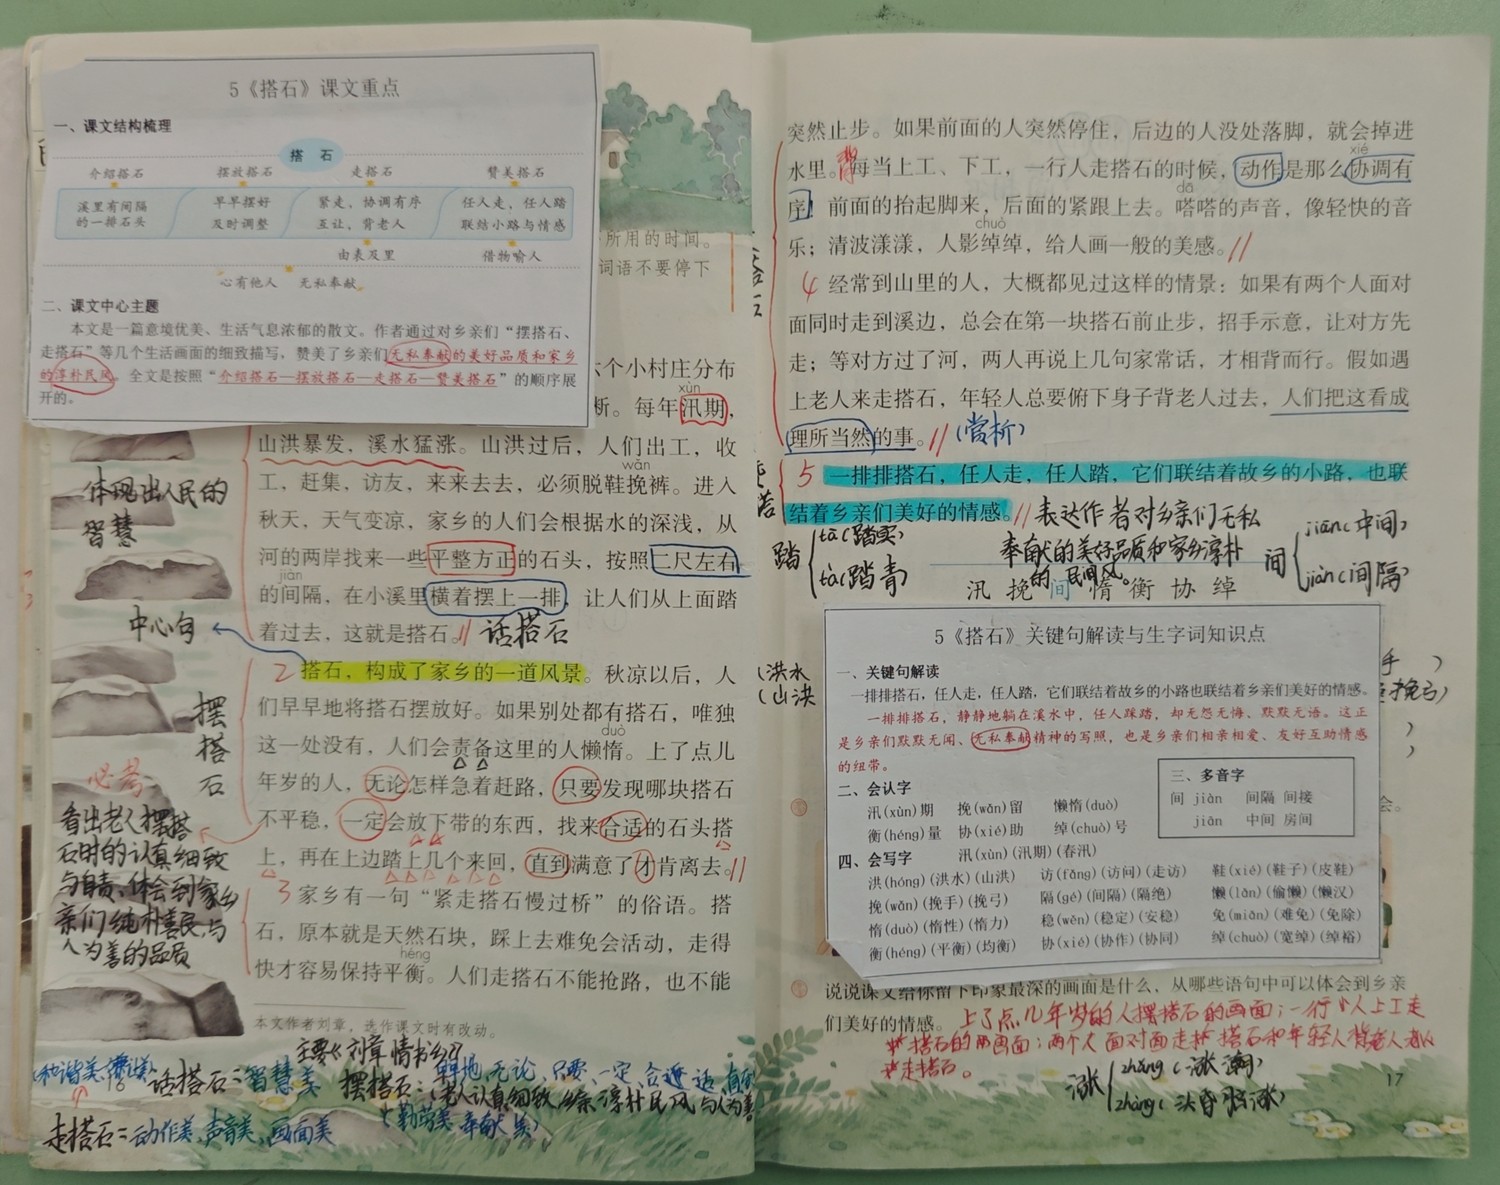 5《搭石》课文重点
一、课文结构梳理
搭 石
介绍搭石 摆放搭石 走搭石 赞美搭石
溪里有间隔 早早摆好 紧走，协调有序 任人走，任人踏
的一排石头 及时调整 互让，背老人 联结小路与情感
由表及里 借物喻人
心有他人 无私奉献
二、课文中心主题
本文是一篇意境优美、生活气息浓郁的散文。作者通过对乡亲们“摆搭石、
走搭石”等几个生活画面的细致描写，赞美了乡亲们无私奉献的美好品质和家乡
的淳朴民风。全文是按照“介绍搭石—摆放搭石—走搭石—赞美搭石”的顺序展
开的。
所用的时间。
词语不要停下
个小村庄分布
xùn
断。每年汛期，
山洪暴发，溪水猛涨。山洪过后，人们出工，收
wǎn
工，赶集，访友，来来去去，必须脱鞋挽裤。进入
秋天，天气变凉，家乡的人们会根据水的深浅，从
河的两岸找来一些平整方正的石头，按照二尺左右
jiàn
的间隔，在小溪里横着摆上一排，让人们从上面踏
着过去，这就是搭石。
话搭石
体现出人民的
智慧
中心句
2 搭石，构成了家乡的一道风景。秋凉以后，人
们早早地将搭石摆放好。如果别处都有搭石，唯独
duò
这一处没有，人们会责备这里的人懒惰。上了点儿
年岁的人，无论怎样急着赶路，只要发现哪块搭石
不平稳，一定会放下带的东西，找来合适的石头搭
上，再在上边踏上几个来回，直到满意了才肯离去。
摆搭石
必考
看出老人摆搭
石时的认真细致
与自责、体会到家乡
亲们纯朴善良与
人为善的品质
3 家乡有一句“紧走搭石慢过桥”的俗语。搭
石，原本就是天然石块，踩上去难免会活动，走得
héng
快才容易保持平衡。人们走搭石不能抢路，也不能
本文作者刘章，选作课文时有改动。
话搭石：智慧美
摆搭石：
老人认真细致 乡亲淳朴民风 与人为善
走搭石：动作美、声音美、画面美
（勤劳美 奉献美）
突然止步。如果前面的人突然停住，后边的人没处落脚，就会掉进
xié
水里。每当上工、下工，一行人走搭石的时候，动作是那么协调有
dā
序！前面的抬起脚来，后面的紧跟上去。嗒嗒的声音，像轻快的音
chuò
乐；清波漾漾，人影绰绰，给人画一般的美感。
4 经常到山里的人，大概都见过这样的情景：如果有两个人面对
面同时走到溪边，总会在第一块搭石前止步，招手示意，让对方先
走；等对方过了河，两人再说上几句家常话，才相背而行。假如遇
上老人来走搭石，年轻人总要俯下身子背老人过去，人们把这看成
理所当然的事。
（赏析）
5 一排排搭石，任人走，任人踏，它们联结着故乡的小路，也联
结着乡亲们美好的情感。
表达作者对乡亲们无私
奉献的美好品质和家乡淳朴
的民间风。
踏 tā（踏实）
tà（踏青）
间 jiān（中间）
jiàn（间隔）
汛 挽 间 惰 衡 协 绰
（洪水
（山洪
5《搭石》关键句解读与生字词知识点
一、关键句解读
一排排搭石，任人走，任人踏，它们联结着故乡的小路也联结着乡亲们美好的情感。
一排排搭石，静静地躺在溪水中，任人踩踏，却无怨无悔、默默无语。这正
是乡亲们默默无闻、无私奉献精神的写照，也是乡亲们相亲相爱、友好互助情感
的纽带。
二、会认字
汛(xùn)期 挽(wǎn)留 懒惰(duò)
衡(héng)量 协(xié)助 绰(chuò)号
三、多音字
间 jiàn 间隔 间接
jiān 中间 房间
四、会写字 汛(xùn)(汛期)(春汛)
洪(hóng)(洪水)(山洪) 访(fǎng)(访问)(走访) 鞋(xié)(鞋子)(皮鞋)
挽(wǎn)(挽手)(挽弓) 隔(gé)(间隔)(隔绝) 懒(lǎn)(偷懒)(懒汉)
惰(duò)(惰性)(惰力) 稳(wěn)(稳定)(安稳) 免(miǎn)(难免)(免除)
衡(héng)(平衡)(均衡) 协(xié)(协作)(协同) 绰(chuò)(宽绰)(绰裕)
说说课文给你留下印象最深的画面是什么，从哪些语句中可以体会到乡亲
们美好的情感。
上了点儿年岁的人摆搭石的画面；一行人上工走
搭石的画面；两个人面对面走搭石和年轻人背老人
走搭石。
涨 zhǎng（涨潮）
zhàng（头昏脑涨）
17